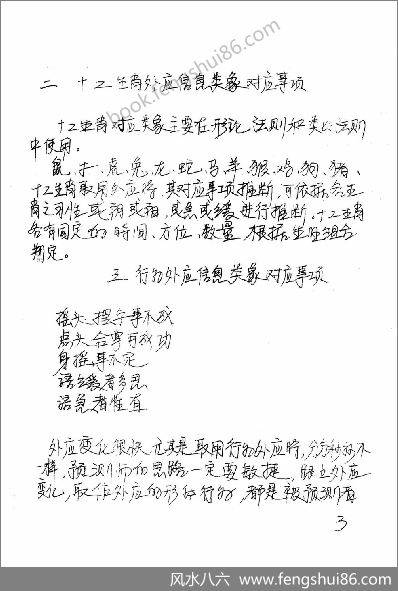 二 十二生肖外应信息类象对应事项
十二生肖对应类象主要在形论法则和类比法则
中使用。
鼠、牛、虎、兔、龙、蛇、马、羊、猴、鸡、狗、猪、
十二生肖取用外应得,其对应事项推断,可依据各生
肖之习性或弱或强,或急或缓进行推断。十二生肖
各有固定的时间、方位、数量,根据生旺组合
判定。
三 行为外应信息类象对应事项
摇头摆手事不成
点头会事可成功
身摇事不定
语缓者多思
语急者性直
外应变化很快,尤其是取用行为外应时,分分秒秒不
一样,预测师的思路一定要敏捷,
变化,取作外应的形和行为,都是
3
book.fengshui86.com
风水八六 www.fengshui86.com